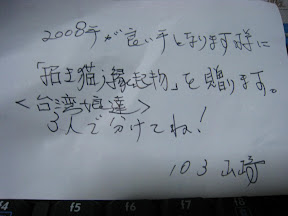 2008年が良い年となります様に
「招き猫縁起物」を贈ります。
<台湾娘達>
3人で分けてね!
103 山崎
f4 f5 f6 f7 f8